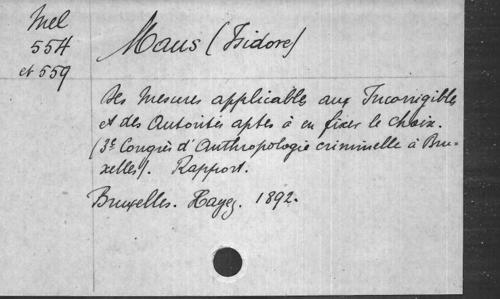 Mel
554
et 559
Maus (Isidore)
Des Mesures applicables aux Incorrigibles
et des Autorités aptes à en fixer le choix.
(3e Congrès d'Anthropologie criminelle à Bru-
xelles). Rapport.
Bruxelles. Hayez. 1892.